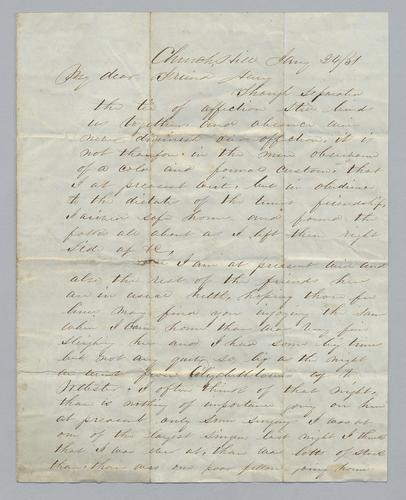 Church Hill Jany 24/51
My dear Friend Harry
Though Separated
the tie of affection Still binds
us together, and absence will
never diminish our affection, it is
not therefore in the mere observance
of a cold and formal custom, that
I at present write, but in obedience
to the dictates of the truest friendship,
I arrived safe home and found the
folks all about as I left them right
Side up &c,
I am at present well and
also the rest of the friends here
are in usual health, hoping these few
lines may find you injoying the Same
when I Came home there was very fine
Sleighing here and I had some big times
but not any quite so big as the night
we went from
I often think of that night,
there is nothing of importance going on here
at present only Some Singing I was at
one of the largest Singings last night I think
that I was ever at, there was lotts of
there, there was one poor fellow going home